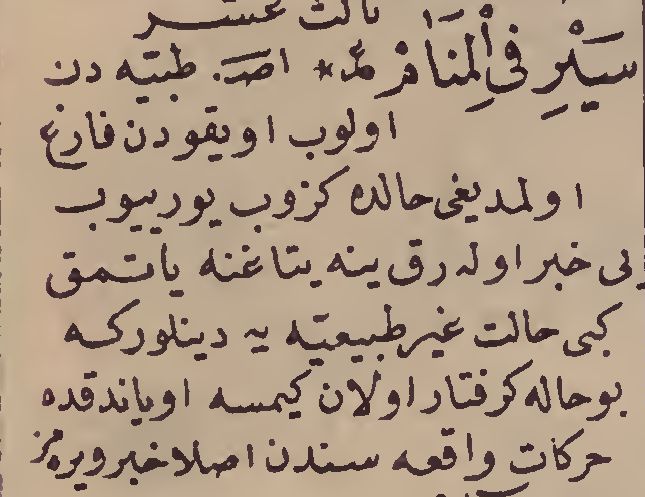 ثالث عشر
سَيْر فِى الْمَنَام ع * اصـ. طبيّه دن
اولوب اويقودن فارغ
اولمديغى حالده كزوب يورييوب
بى خبر اوله رق ينه يتاغنه ياتمق
كبى حالت غير طبيعيّه يه دينلوركه
بو حاله كرفتار اولان كيمسه اوياندقده
حركات واقعه سندن اصلا خبر ويره مز